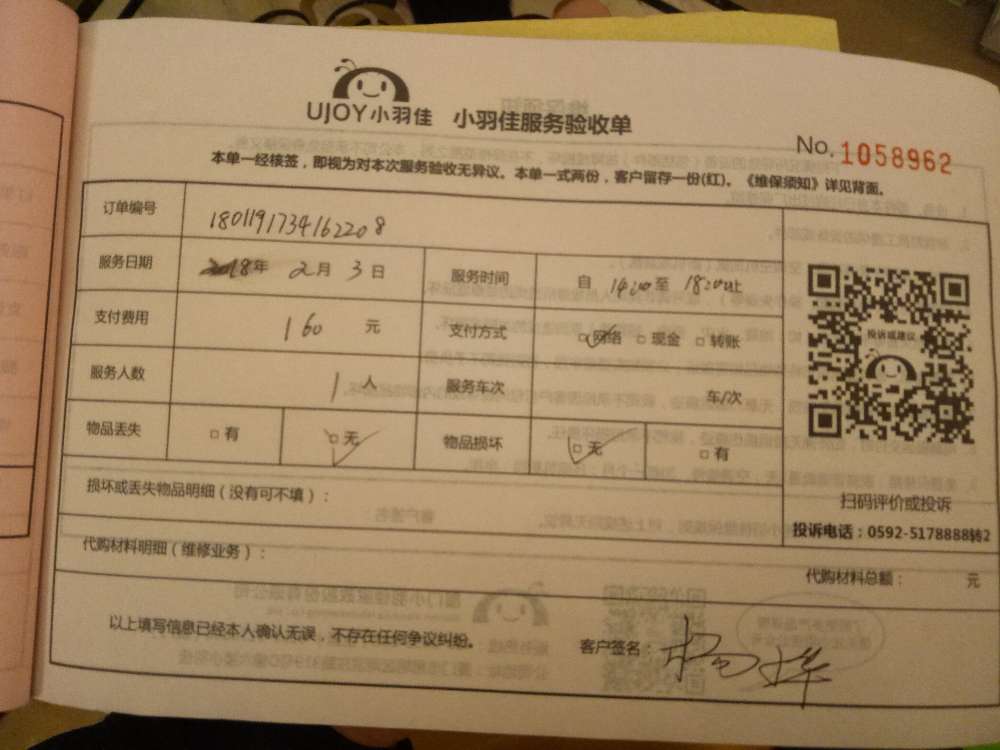 UJOY小羽佳 小羽佳服务验收单
No. 1058962
本单一经核签，即视为对本次服务验收无异议。本单一式两份，客户留存一份(红)。《维保须知》详见背面。
订单编号 1801191734162208
服务日期 2018年 2月 3日 服务时间 自 14:00至 18:00止
支付费用 160 元 支付方式 □网络 □现金 □转账
投诉或建议
服务人数 1人 服务车次 车/次
物品丢失 □有 □无 物品损坏 □无 □有
损坏或丢失物品明细（没有可不填）：
扫码评价或投诉
投诉电话：0592-5178888转2
代购材料明细（维修业务）：
代购材料总额： 元
以上填写信息已经本人确认无误，不存在任何争议纠纷。
客户签名：